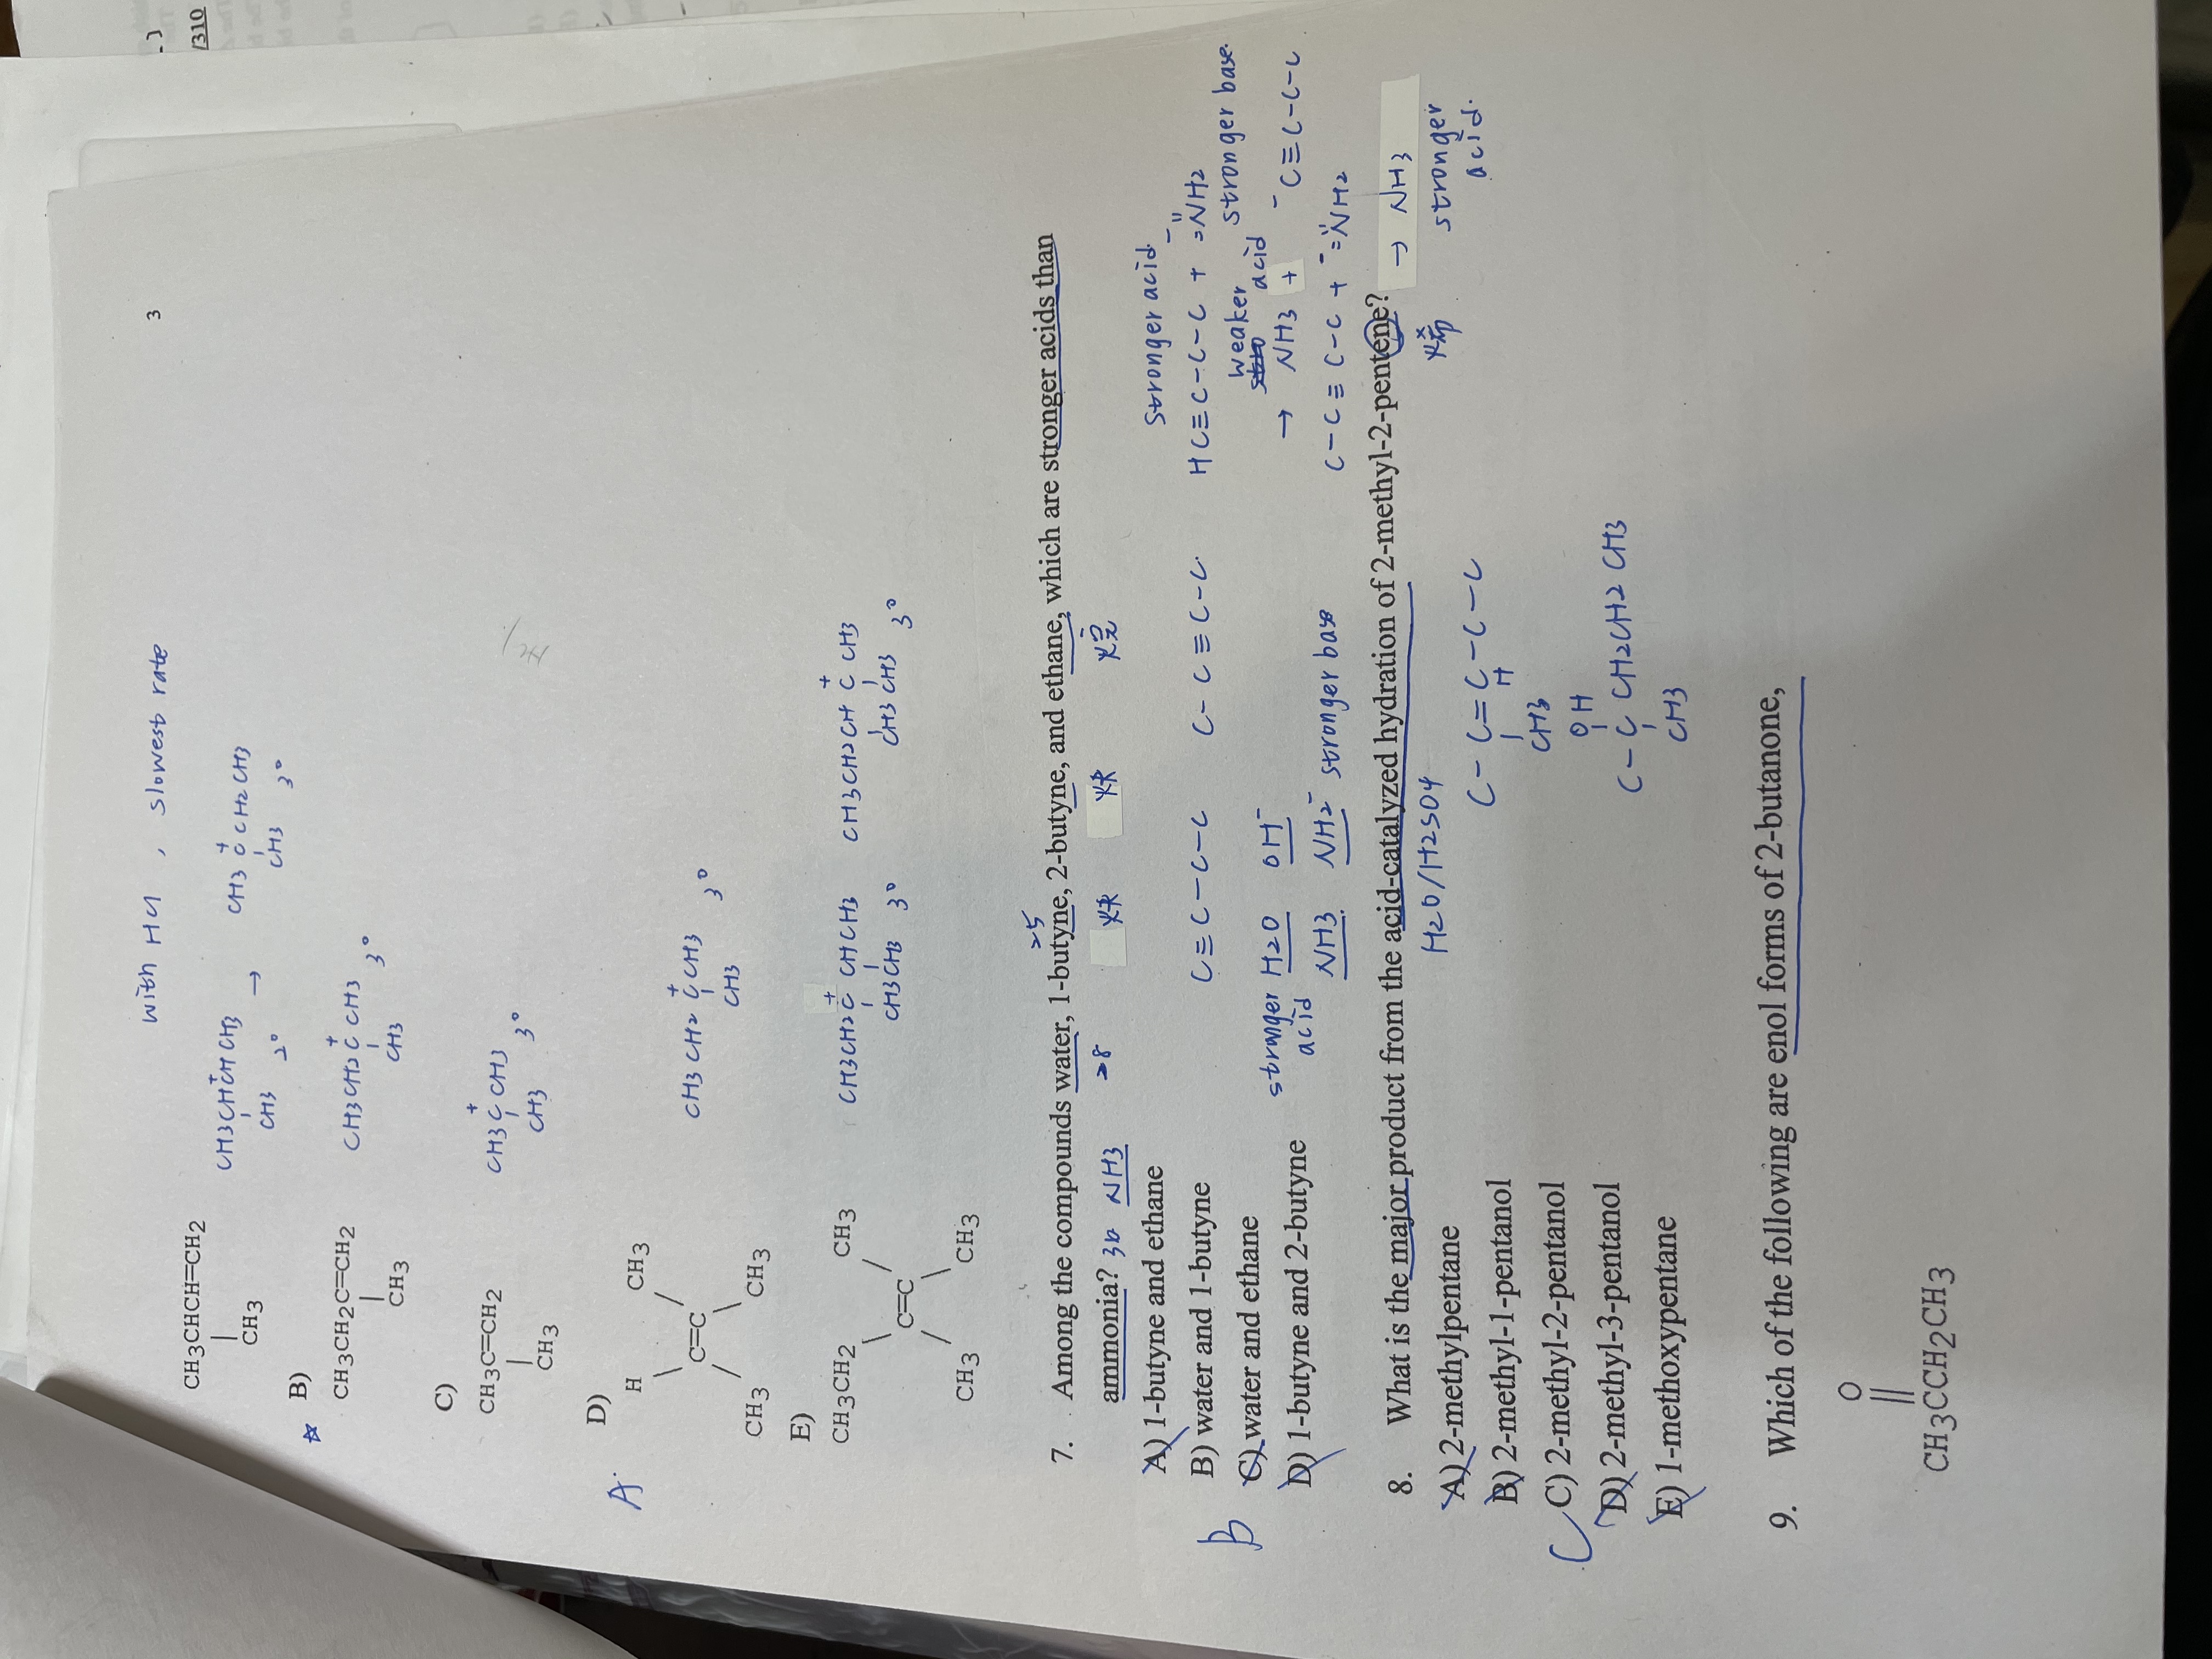 with HCl , slowest rate
3
CH3CHCH=CH2
CH3
CH3CHCHCH3 + CH3 2° → CH3CCH2CH3 + CH3 3°
B)
CH3CH2C=CH2
CH3
CH3CH2CCH3 + CH3 3°
C)
CH3C=CH2
CH3
CH3CCH3 + CH3 3°
HCl
A
D)
H CH3
C=C
CH3 CH3
CH3CH2CCH3 + CH3 3°
E)
CH3CH2 CH3
C=C
CH3 CH3
CH3CH2C CHCH3 + CH3 CH3 3°
CH3CH2CH C CH3 + CH3 CH3 3°
25
7. Among the compounds water, 1-butyne, 2-butyne, and ethane, which are stronger acids than
ammonia? 36 NH3 >8 炔 炔 烷
A) 1-butyne and ethane
B) water and 1-butyne
C) water and ethane
D) 1-butyne and 2-butyne
B
C≡C-C-C C-C≡C-C
stronger acid H2O OH-
NH3 NH2- stronger base
stronger acid
HC≡C-C-C + NH2 -
stronger base
weaker acid
→ NH3 + -C≡C-C-C
C-C≡C-C + NH2 -
→ NH3
stronger acid.
8. What is the major product from the acid-catalyzed hydration of 2-methyl-2-pentene?
H2O/H2SO4 烯
A) 2-methylpentane
B) 2-methyl-1-pentanol
C C) 2-methyl-2-pentanol
D) 2-methyl-3-pentanol
E) 1-methoxypentane
C-C=C-C-C
H
CH3
OH
C-C CH2CH2CH3
CH3
9. Which of the following are enol forms of 2-butanone,
O
CH3CCH2CH3
/310